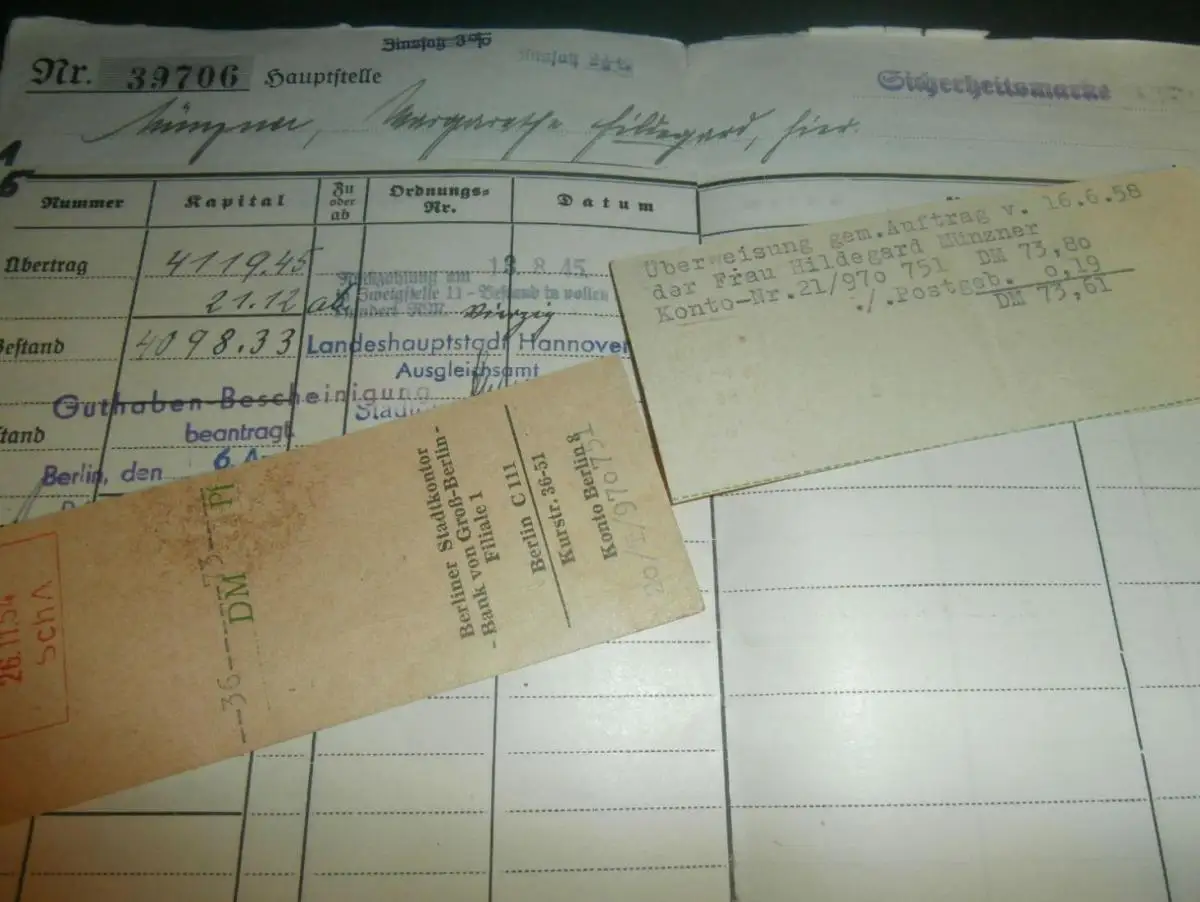 Zinsfaß 3%
Nr. 39706 Hauptstelle
Sicherheitsmarke
Münzner, Margarethe Hildegard, hier.
Nummer Kapital Zu oder ab Ordnungs-Nr. Datum
Übertrag 4119.45
21.12 ab
Rückzahlung am 18.8.45
Zweigstelle 11 - Bestand in vollen
hundert RM. Vierzig
Bestand 4098.33
Landeshauptstadt Hannover
Ausgleichsamt
Guthaben-Bescheinigung
beantragt
Berlin, den 6.
Überweisung gem. Auftrag v. 16.6.58
der Frau Hildegard Münzner
Konto-Nr. 21/970 751 DM 73,80
./. Postgeb. 0,19
DM 73,61
Berliner Stadtkontor
- Bank von Groß-Berlin -
Filiale 1
Berlin C 111
Kurstr. 36-51
Konto Berlin 8
20/1/970751
--36----73--
DM Pf
26.11.54